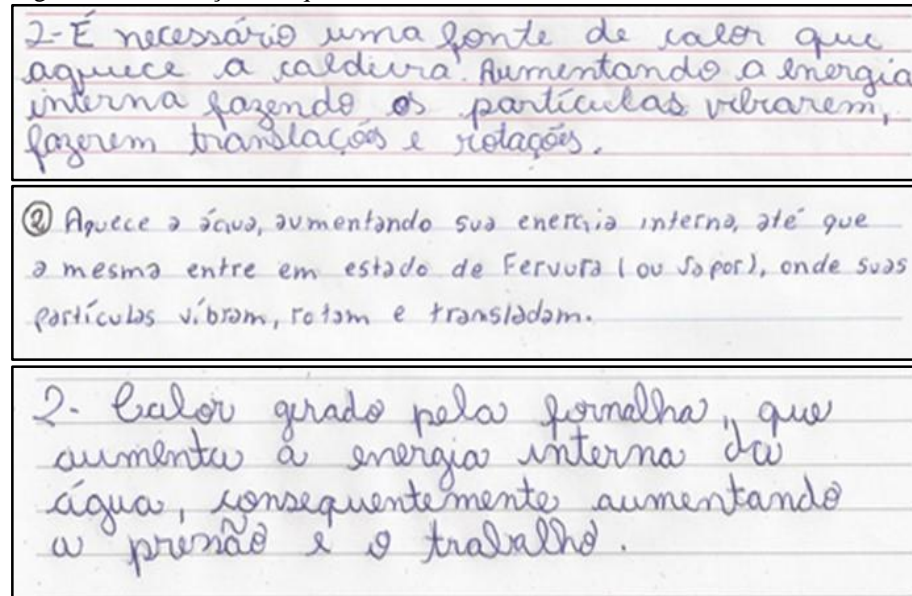 2-É necessário uma fonte de calor que
aquece a caldeira. Aumentando a energia
interna fazendo as partículas vibrarem,
fazerem translações e rotações.
② Aquece a água, aumentando sua energia interna, até que
a mesma entre em estado de Fervura (ou vapor), onde suas
partículas vibram, rotam e transladam.
2- Calor gerado pela fornalha, que
aumenta a energia interna da
água, consequentemente aumentando
a pressão e o trabalho.